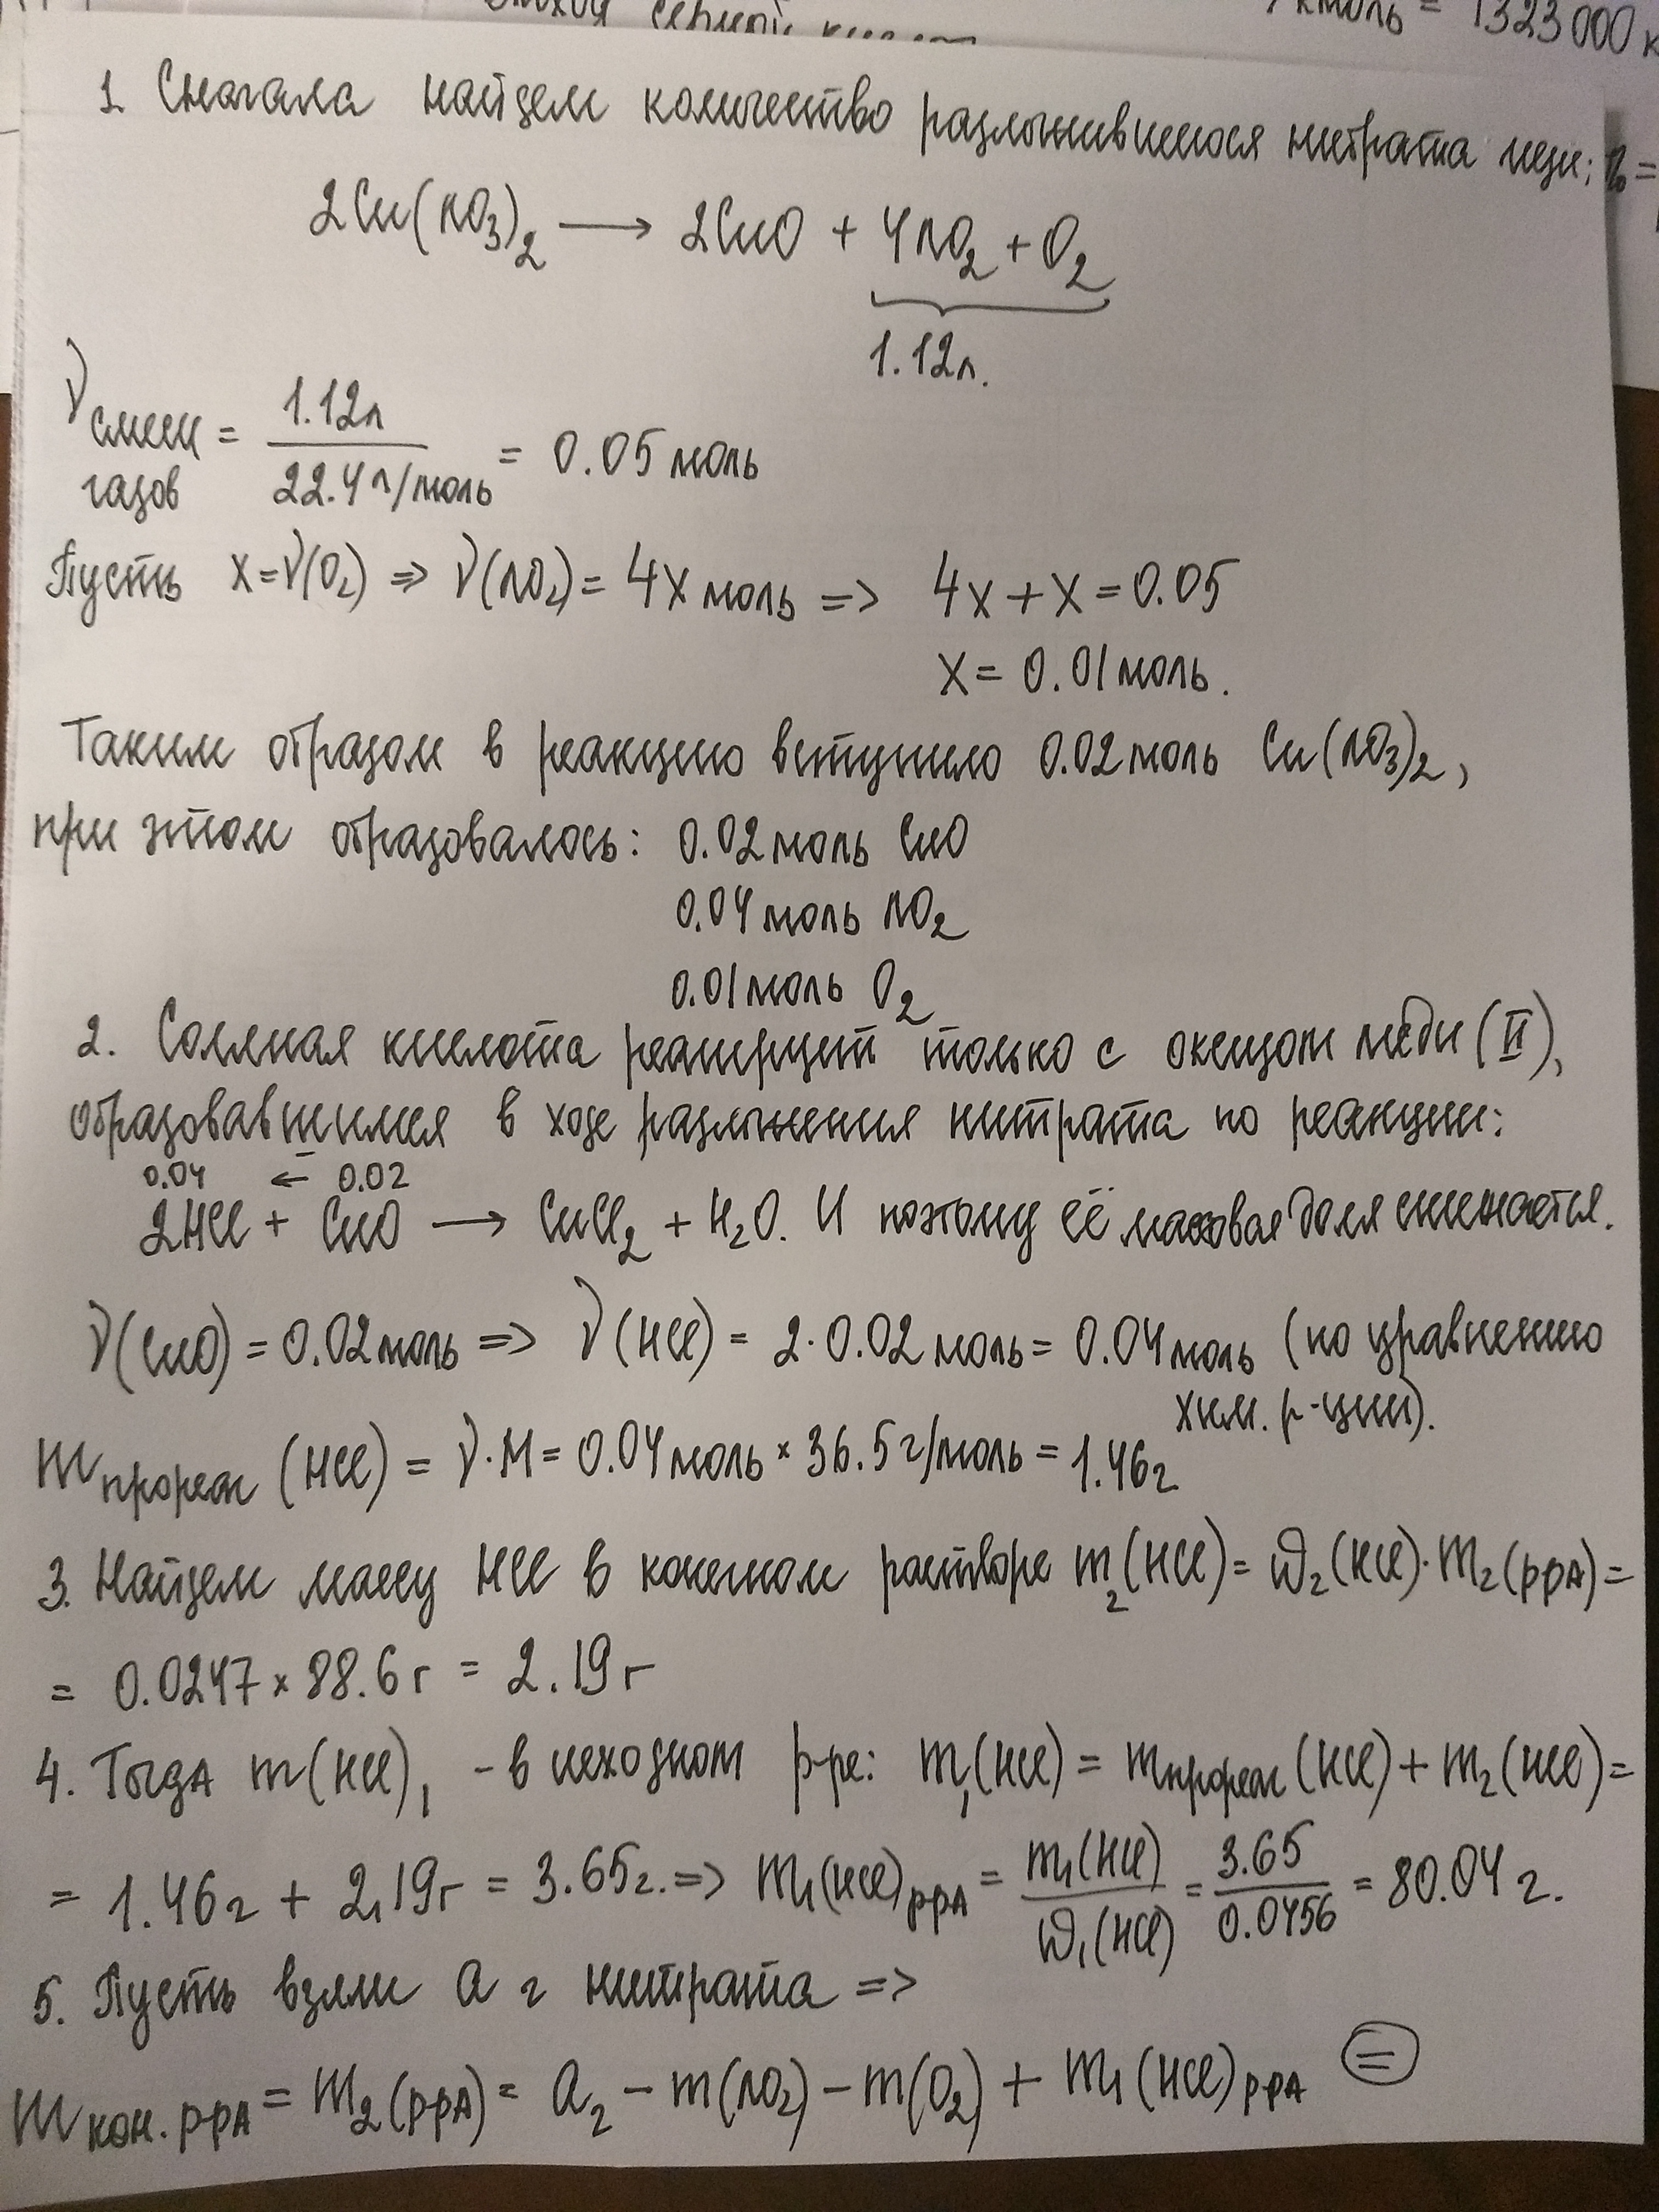 серной
моль = 1323000 к
1. Сначала найдем количество разложившегося нитрата меди;
2Cu(NO3)2 ⟶ 2CuO + 4NO2 + O2
1.12л.
ν смеси газов = 1.12л / 22.4л/моль = 0.05 моль
Пусть x = ν(O2) => ν(NO2) = 4x моль => 4x + x = 0.05
x = 0.01 моль.
Таким образом в реакцию вступило 0.02 моль Cu(NO3)2,
при этом образовалось: 0.02 моль CuO
0.04 моль NO2
0.01 моль O2
2. Соляная кислота реагирует только с оксидом меди (II),
образовавшимся в ходе разложения нитрата по реакции:
0.04 ← 0.02
2HCl + CuO ⟶ CuCl2 + H2O. И поэтому её массовая доля снижается.
ν(CuO) = 0.02 моль => ν(HCl) = 2·0.02 моль = 0.04 моль (по уравнению
хим. р-ции).
m прореаг (HCl) = ν·M = 0.04 моль × 36.5 г/моль = 1.46 г
3. Найдем массу HCl в конечном растворе m2(HCl) = ω2(HCl)·m2(рра) =
= 0.0247 × 88.6 г = 2.19 г
4. Тогда m(HCl)1 - в исходном р-ре: m1(HCl) = m прореаг (HCl) + m2(HCl) =
= 1.46 г + 2,19 г = 3.65 г. => m1(HCl) рра = m1(HCl) / ω1(HCl) = 3.65 / 0.0456 = 80.04 г.
5. Пусть взяли a г нитрата =>
m кон. рра = m2(рра) = a г - m(NO2) - m(O2) + m1(HCl) рра =